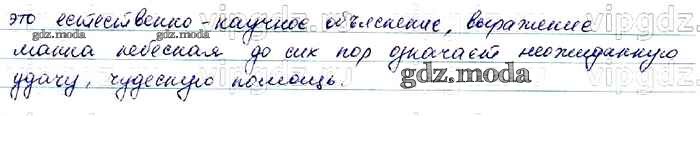 это естественно-научное объяснение, выражение
манна небесная до сих пор означает неожиданную
удачу, чудесную помощь.
gdz.moda
gdz.moda